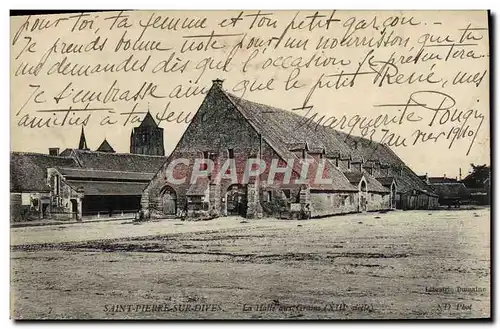 pour toi, ta femme et ton petit garçon. —
Je prends bonne note pour un nourrisson que tu
me demandes dès que l'occasion se présentera.
Je t'embrasse ainsi que le petit René, mes
amitiés à ta femme Marguerite Pougy
CARTE
POSTALE
CPHILA
SAINT-PIERRE-SUR-DIVES. La Halle aux Grains (XIIIe siècle)
Librairie Domaine
ND Phot